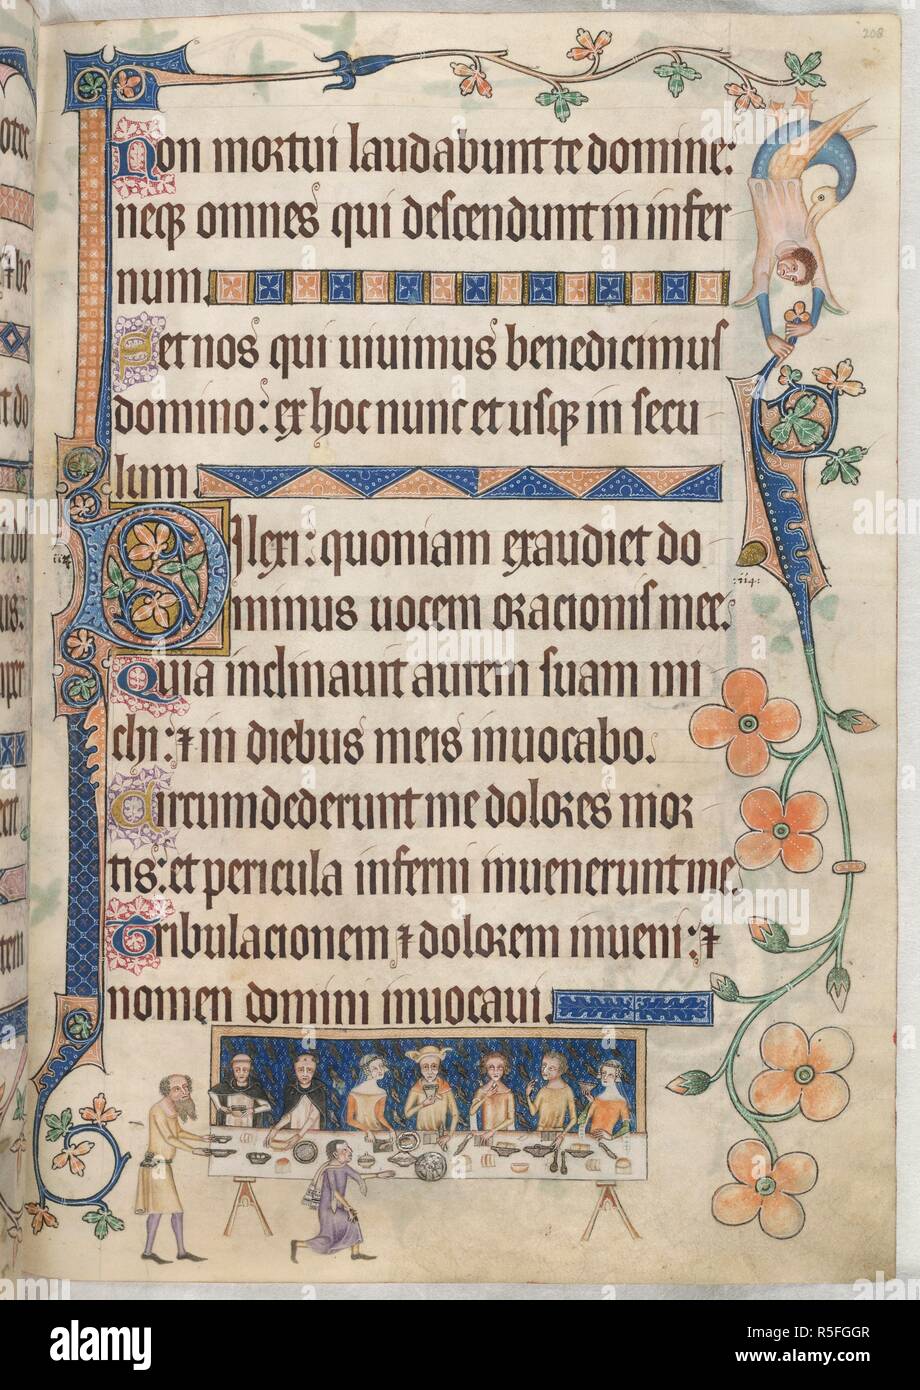 208
Non mortui laudabunt te domine:
neqȝ omnes qui descendunt in infer
num.
Set nos qui uiuimus benedicimus
domino: ex hoc nunc et usqȝ in secu
lum.
Dilexi: quoniam exaudiet do
minus uocem oracionis mee.
Quia inclinauit aurem suam mi
chi: ⁊ in diebus meis inuocabo.
Circumdederunt me dolores mor
tis: et pericula inferni inuenerunt me.
Tribulacionem ⁊ dolorem inueni: ⁊
nomen domini inuocaui.
:114:
alamy
Image ID: R5FGGR
www.alamy.com